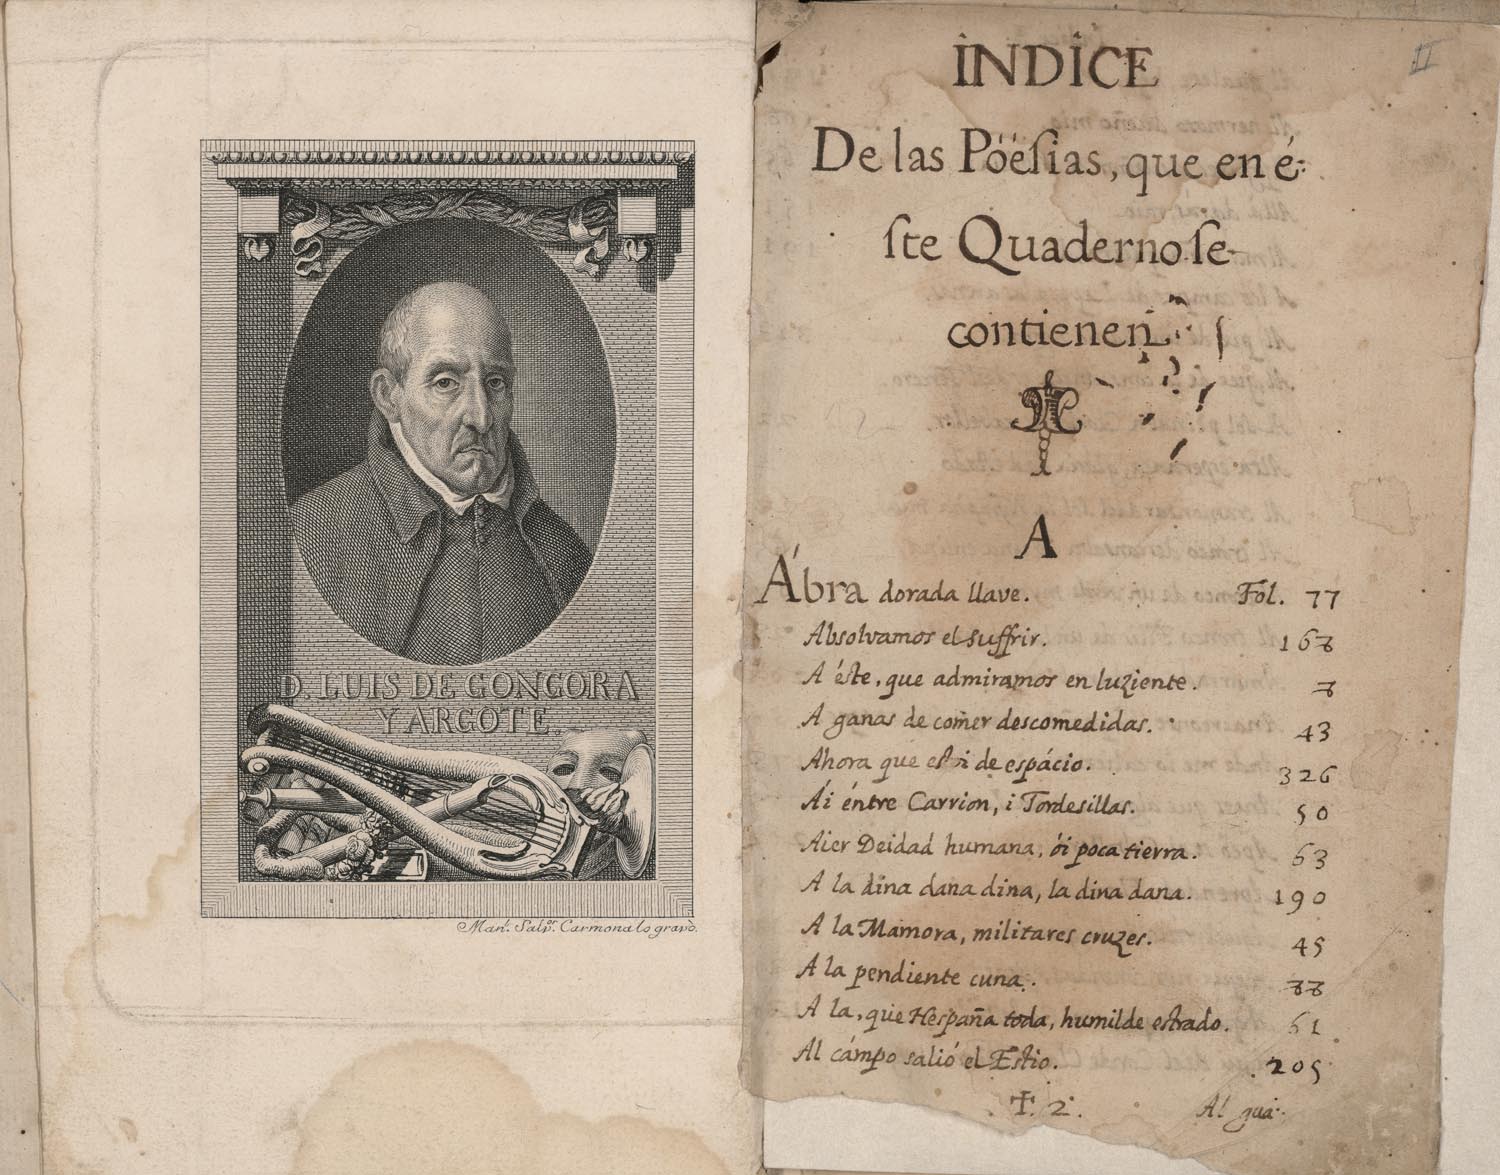 D. LUIS DE GONGORA
Y ARGOTE.
Manl. Salvor. Carmona lo gravò.
II
INDICE
De las Pöësias, que en é-
ste Quaderno se
contienen
A
Ábra dorada llave. Fol. 77
Absolvamos el suffrir. 168
A éste, que admiramos en luziente. 8
A ganas de comer descomedidas. 43
Ahora que estoi de espácio. 326
Ái éntre Carrion, i Tordesillas. 50
Aier Deidad humana, ói poca tierra. 63
A la dina dana dina, la dina dana. 190
A la Mamora, militares cruzes. 45
A la pendiente cuna. 88
A la, que Hespaña toda, humilde estrado. 61
Al cámpo salió el Estio. 205
T. 2. Al gua